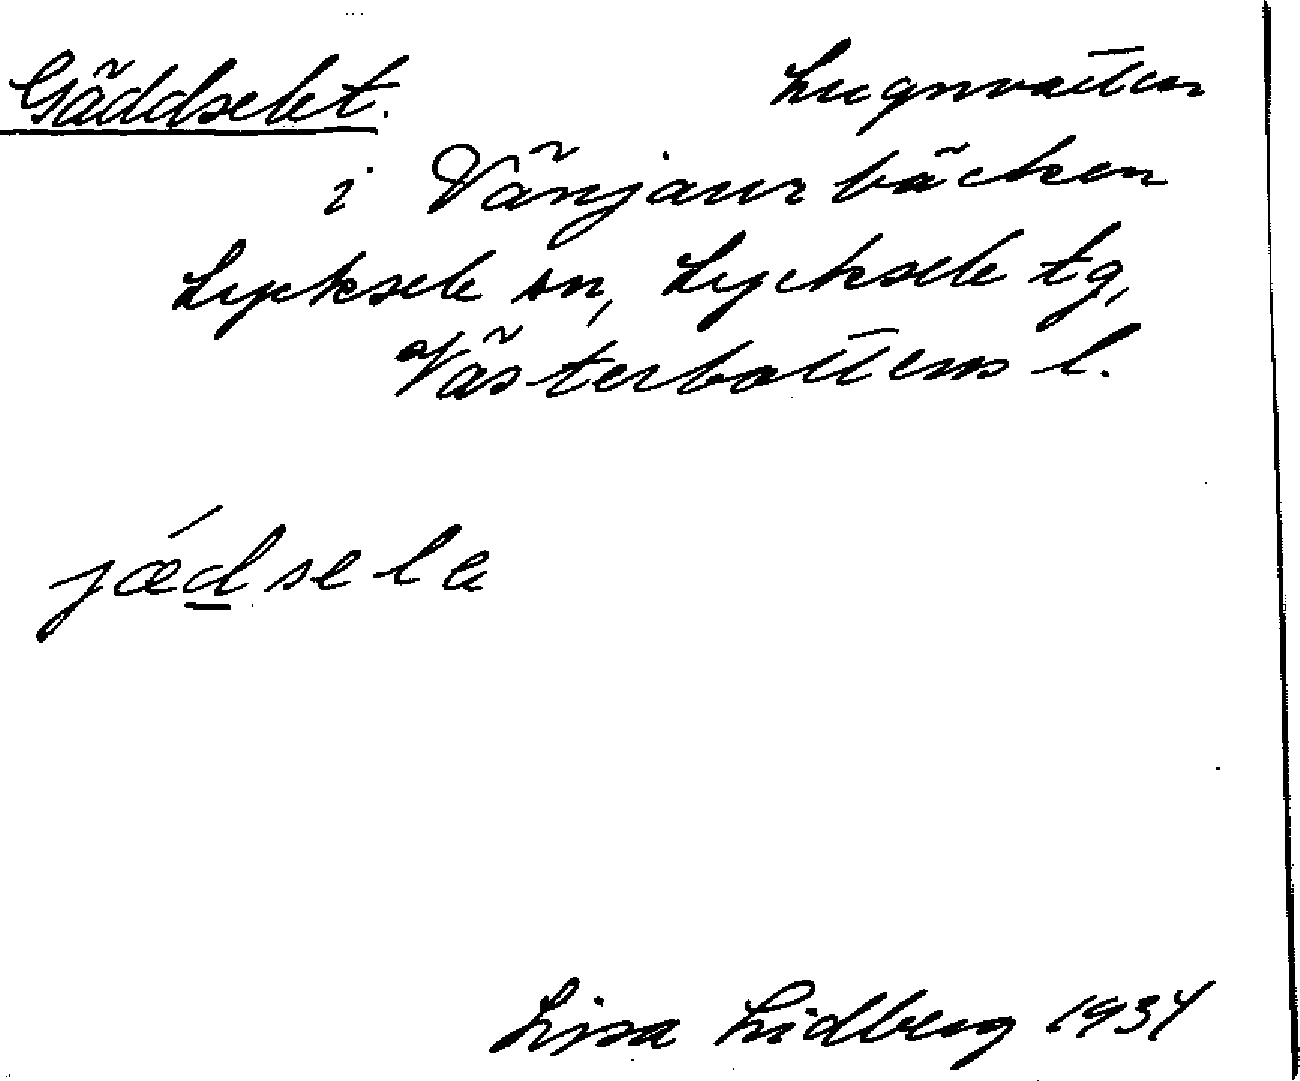 Gäddselet. Lugnvatten
i Vänjaurbäcken
Lycksele sn, Lycksele tg,
Västerbottens l.
jǽdsela
Lisa Lidberg 1934